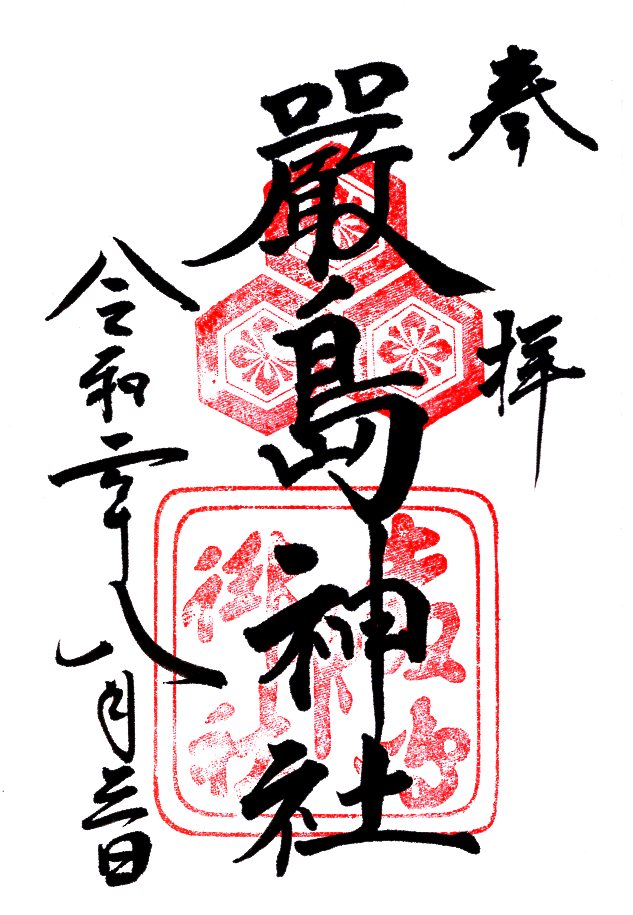 奉拝
嚴島神社
令和二年八月三日